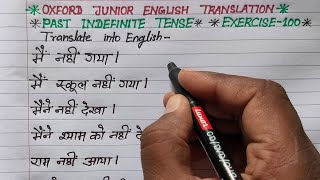 *OXFORD JUNIOR ENGLISH TRANSLATION*
*PAST INDEFINITE TENSE* *EXERCISE-100*
Translate into English-
मैं नहीं गया।
मैं स्कूल नहीं गया।
मैंने नहीं देखा।
मैंने श्याम को नहीं
राम नहीं आया।